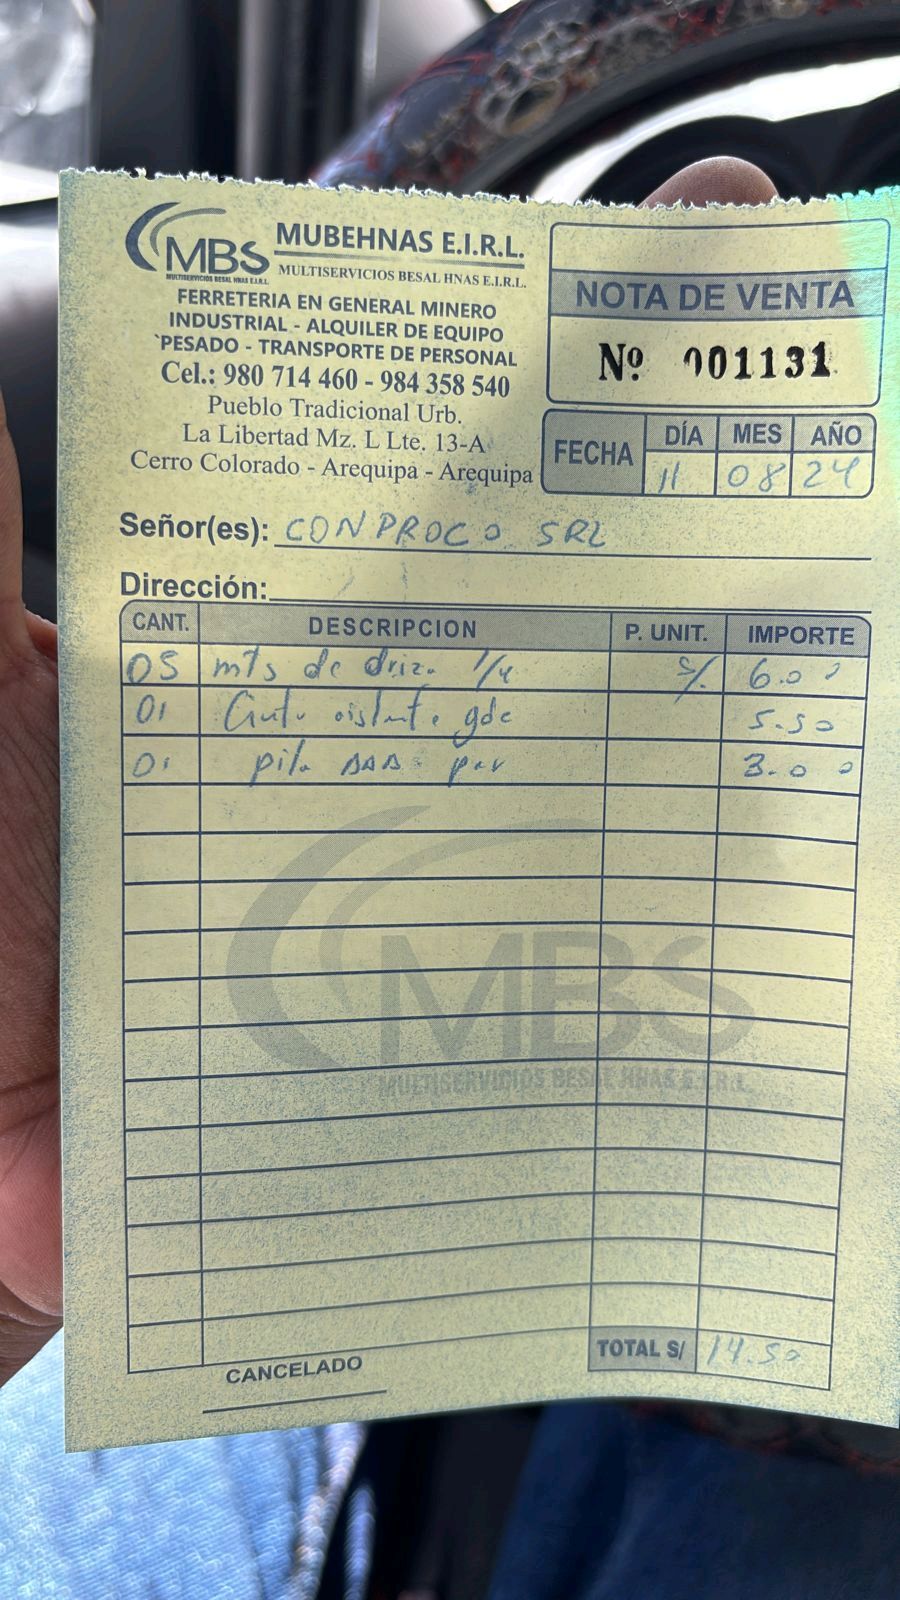 MBS
MULTISERVICIOS BESAL HNAS E.I.R.L.
MUBEHNAS E.I.R.L.
MULTISERVICIOS BESAL HNAS E.I.R.L.
FERRETERIA EN GENERAL MINERO
INDUSTRIAL - ALQUILER DE EQUIPO
`PESADO - TRANSPORTE DE PERSONAL
Cel.: 980 714 460 - 984 358 540
Pueblo Tradicional Urb.
La Libertad Mz. L Lte. 13-A
Cerro Colorado - Arequipa - Arequipa
NOTA DE VENTA
Nº 001131
FECHA DÍA MES AÑO
11 08 24
Señor(es): CONPROCO SRL
Dirección:
CANT. DESCRIPCION P. UNIT. IMPORTE
05 mts de driza 1/4 S/. 6.00
01 Cinta aislante gde 5.50
01 pila AAA par 3.00
MBS
MULTISERVICIOS BESAL HNAS E.I.R.L.
TOTAL S/ 14.50
CANCELADO